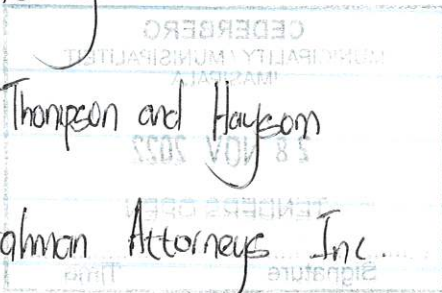 CEDERBERG
MUNICIPALITY / MUNISIPALITEIT
UMASIPALA
Thompson and Haysom
28 NOV 2022
TENDERS OPEN
Attorneys Inc.
Signature Time